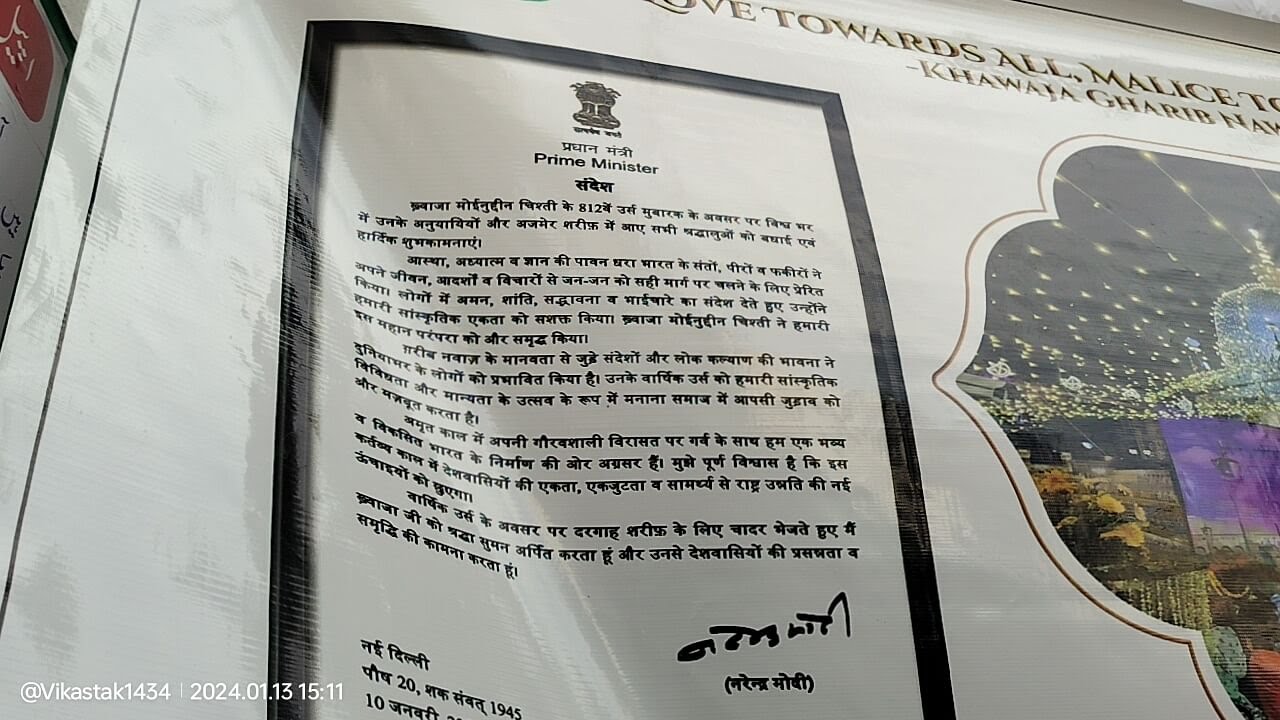 LOVE TOWARDS ALL, MALICE TO
-KHAWAJA GHARIB NAW
सत्यमेव जयते
प्रधान मंत्री
Prime Minister
संदेश
ख़्वाजा मोईनुद्दीन चिश्ती के 812वें उर्स मुबारक के अवसर पर विश्व भर
में उनके अनुयायियों और अजमेर शरीफ़ में आए सभी श्रद्धालुओं को बधाई एवं
हार्दिक शुभकामनाएं।
आस्था, अध्यात्म व ज्ञान की पावन धरा भारत के संतों, पीरों व फकीरों ने
अपने जीवन, आदर्शों व विचारों से जन-जन को सही मार्ग पर चलने के लिए प्रेरित
किया। लोगों में अमन, शांति, सद्भावना व भाईचारे का संदेश देते हुए उन्होंने
हमारी सांस्कृतिक एकता को सशक्त किया। ख़्वाजा मोईनुद्दीन चिश्ती ने हमारी
इस महान परंपरा को और समृद्ध किया।
ग़रीब नवाज़ के मानवता से जुड़े संदेशों और लोक कल्याण की भावना ने
दुनियाभर के लोगों को प्रभावित किया है। उनके वार्षिक उर्स को हमारी सांस्कृतिक
विविधता और मान्यता के उत्सव के रूप में मनाना समाज में आपसी जुड़ाव को
और मज़बूत करता है।
अमृत काल में अपनी गौरवशाली विरासत पर गर्व के साथ हम एक भव्य
व विकसित भारत के निर्माण की ओर अग्रसर हैं। मुझे पूर्ण विश्वास है कि इस
कर्तव्य काल में देशवासियों की एकता, एकजुटता व सामर्थ्य से राष्ट्र उन्नति की नई
ऊंचाइयों को छुएगा।
वार्षिक उर्स के अवसर पर दरगाह शरीफ़ के लिए चादर भेजते हुए मैं
ख़्वाजा जी को श्रद्धा सुमन अर्पित करता हूं और उनसे देशवासियों की प्रसन्नता व
समृद्धि की कामना करता हूं।
नरेन्द्र मोदी
(नरेन्द्र मोदी)
नई दिल्ली
पौष 20, शक संवत् 1945
10 जनवरी,
@Vikastak1434 | 2024.01.13 15:11